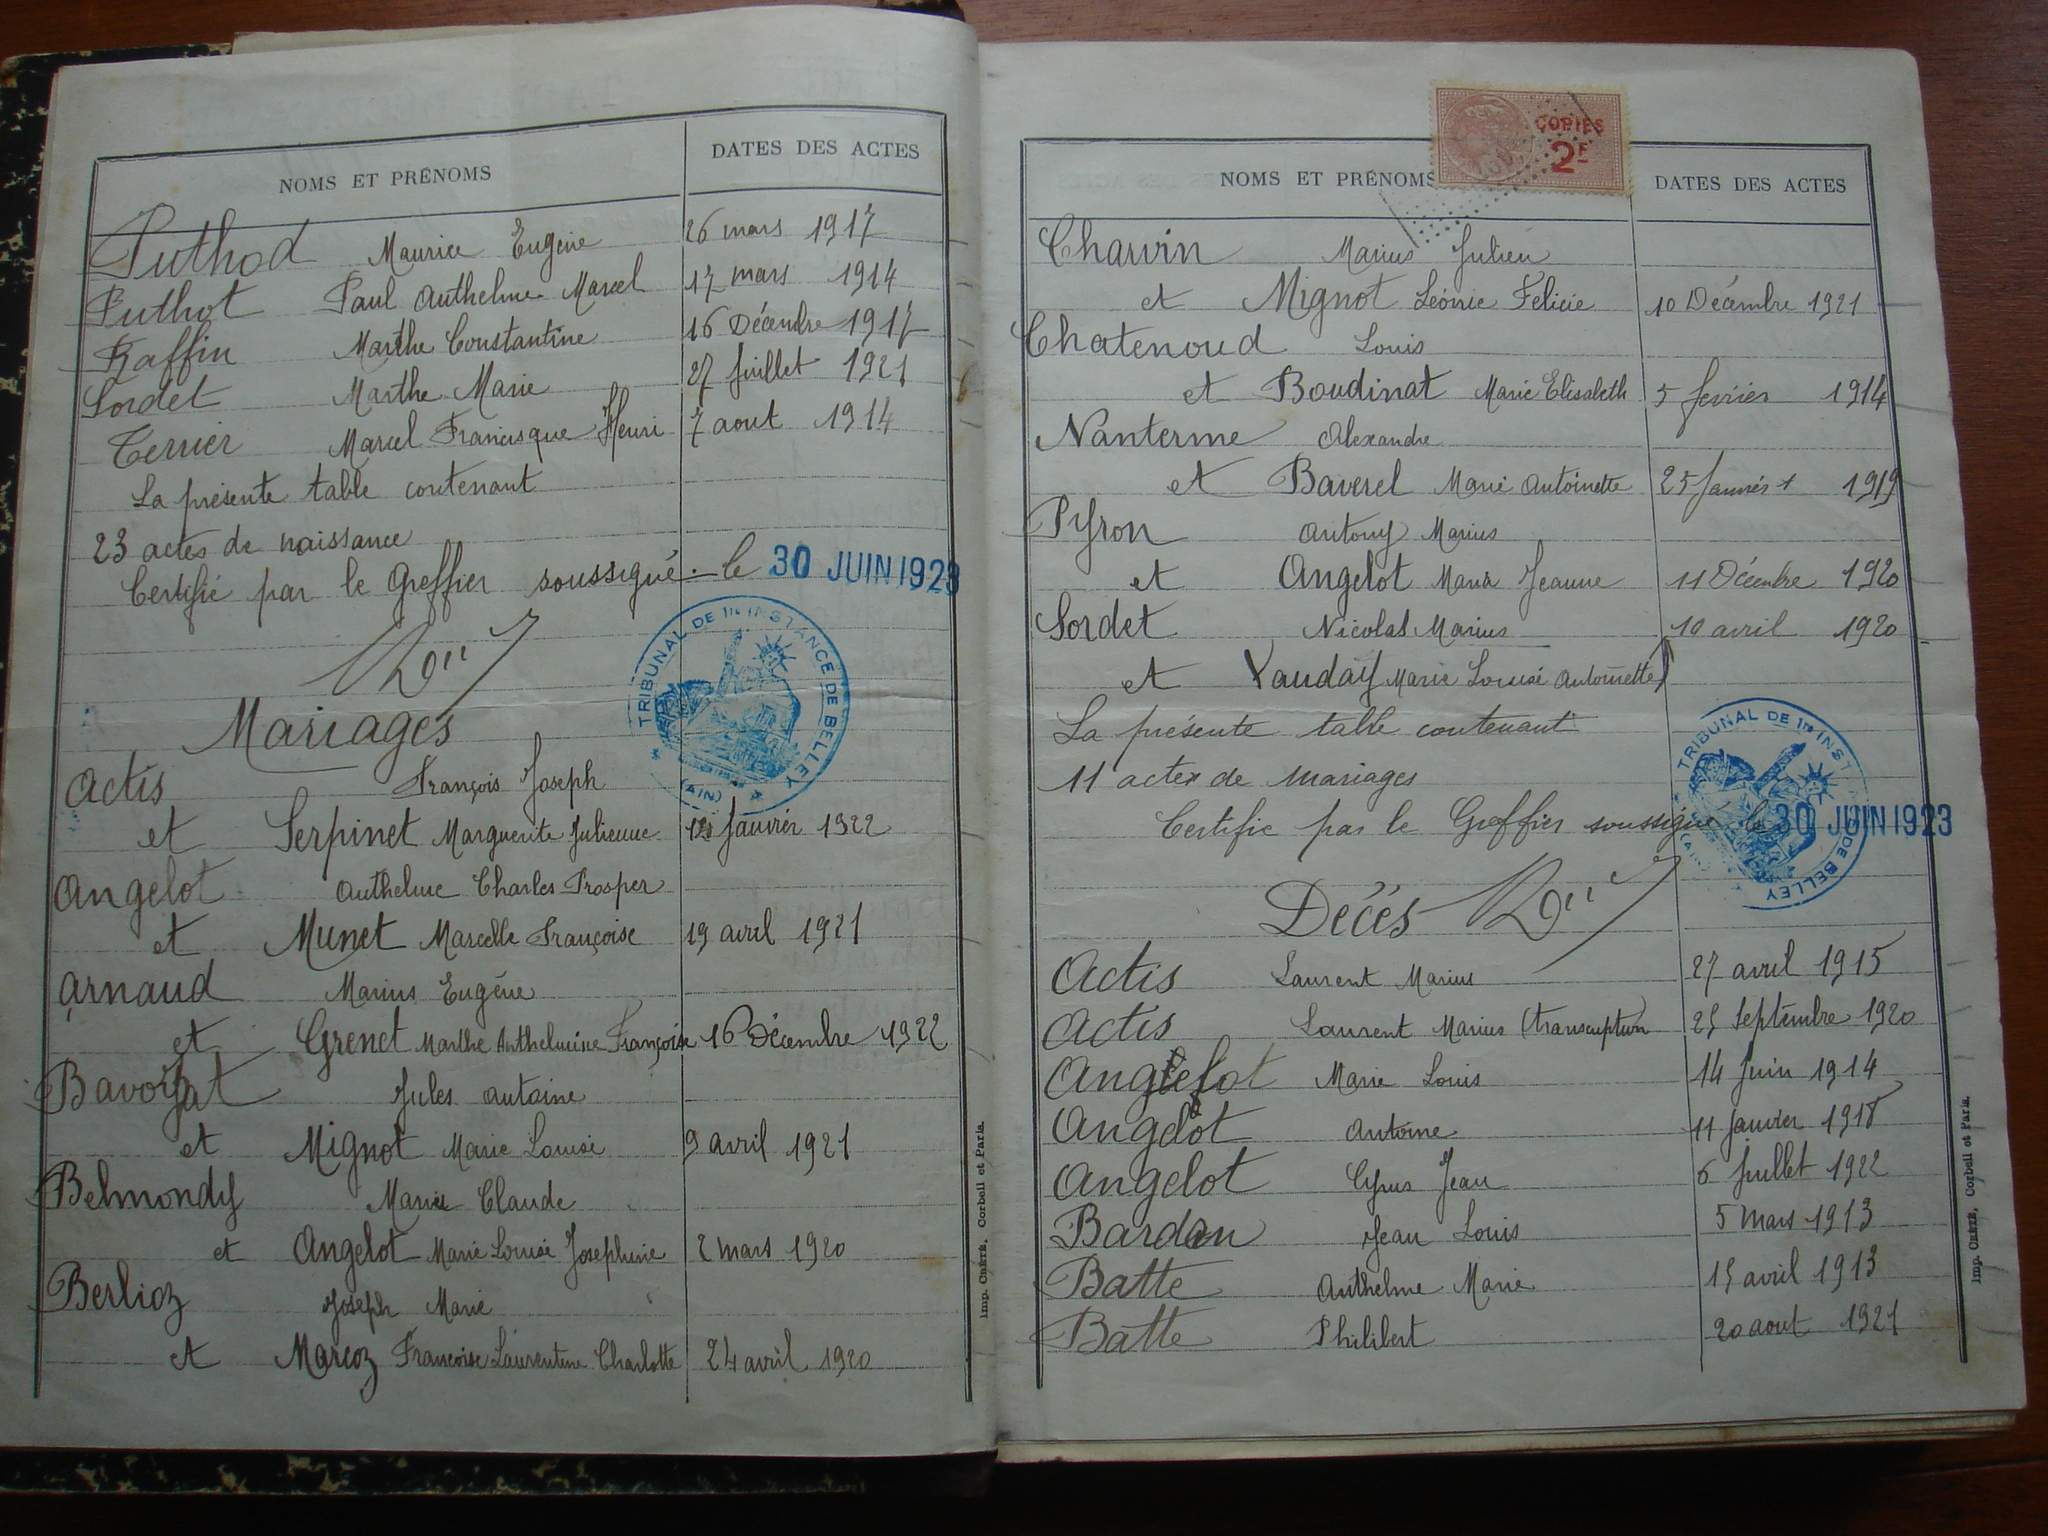 NOMS ET PRÉNOMS DATES DES ACTES
Puthod Maurice Eugène 26 mars 1917
Puthot Paul Anthelme Marcel 17 mars 1914
Raffin Marthe Constantine 16 Décembre 1917
Sordet Marthe Marie 27 juillet 1921
Terrier Marcel Francisque Henri 7 aout 1914
La présente table contenant
23 actes de naissance
Certifié par le Greffier soussigné. le 30 JUIN 1923
TRIBUNAL DE 1re INSTANCE DE BELLEY
(AIN)
Mariages
Actis François Joseph
et Serpinet Marguerite Julienne janvier 1922
Angelot Anthelme Charles Prosper
et Munet Marcelle Françoise 19 avril 1921
Arnaud Marius Eugène
et Grenet Marthe Anthelmine Françoise 16 Décembre 1922
Bavozat Jules Antoine
et Mignot Marie Louise 9 avril 1921
Belmondy Claude
et Angelot Marie Louise Josephine 2 mars 1920
Berlioz Joseph Marie
et Marcoz Françoise Laurentine Charlotte 24 avril 1920
Imp. CRÉTÉ, Corbeil et Paris.
COPIES
2F
NOMS ET PRÉNOMS DATES DES ACTES
Charvin Marius Julien
et Mignot Léonie Felicie 10 Décembre 1921
Chatenoud Louis
et Boudinat Marie Elisabeth 5 fevrier 1914
Nanterme Alexandre
et Baverel Marie Antoinette 25 Janvier 1919
Pyron Antony Marius
et Angelot Maria Jeanne 11 Décembre 1920
Sordet Nicolas Marius 10 avril 1920
et Vauday Marie Louise Antoinette
La présente table contenant
11 actes de mariages
Certifié par le Greffier soussigné le 30 JUIN 1923
TRIBUNAL DE 1re INST DE BELLEY
(AIN)
Décès
Actis Laurent Marius 27 avril 1915
Actis Laurent Marius (transcription 25 Septembre 1920
Angelot Marie Louis 14 Juin 1914
Angelot Antoine 11 Janvier 1918
Angelot Cyrus Jean 6 Juillet 1922
Bardin Jean Louis 5 mars 1913
Batte Anthelme Marie 15 avril 1913
Batte Philibert 20 aout 1921
Imp. CRÉTÉ, Corbeil et Paris.